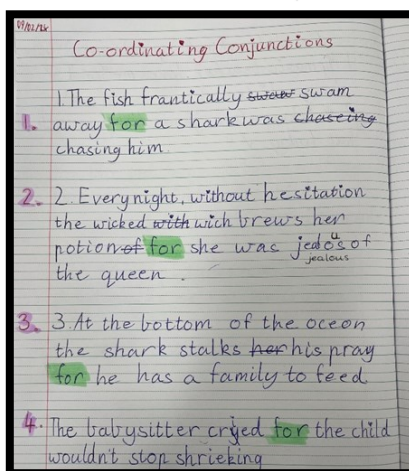 Co-ordinating Conjunctions
1. The fish frantically swam swam
1. away for a shark was chaseing
chasing him
2. 2. Every night, without hesitation
the wicked with wich brews her
potion of for she was jealous of
jealous
the queen.
3. 3. At the bottom of the oceon
the shark stalks her his pray
for he has a family to feed
4. The babysitter cryed for the child
wouldn't stop shrieking